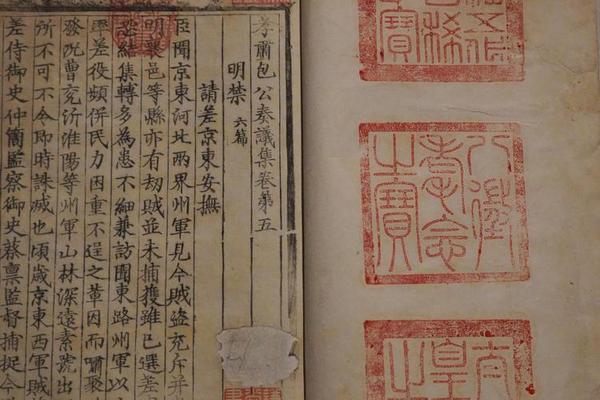 稀
寶
八徵
耄念
之寶
太
皇
之
孝肅包公奏議集卷第五
明禁 六篇
請差京東安撫
臣聞京東河北兩界州軍見今賊盜充斥并
明襄邑等縣亦有劫賊並未捕獲雖已選差
恐結集轉多為患不細兼訪聞東路州軍以
率差役頻併民力困重不逞之輩因而嘯聚
發況曹兗沂淮陽等州軍山林深遠素號出
所不可不令即時誅滅也頃歲京東西軍賊
差侍御史仲簡監察御史蔡稟監督捕捉今